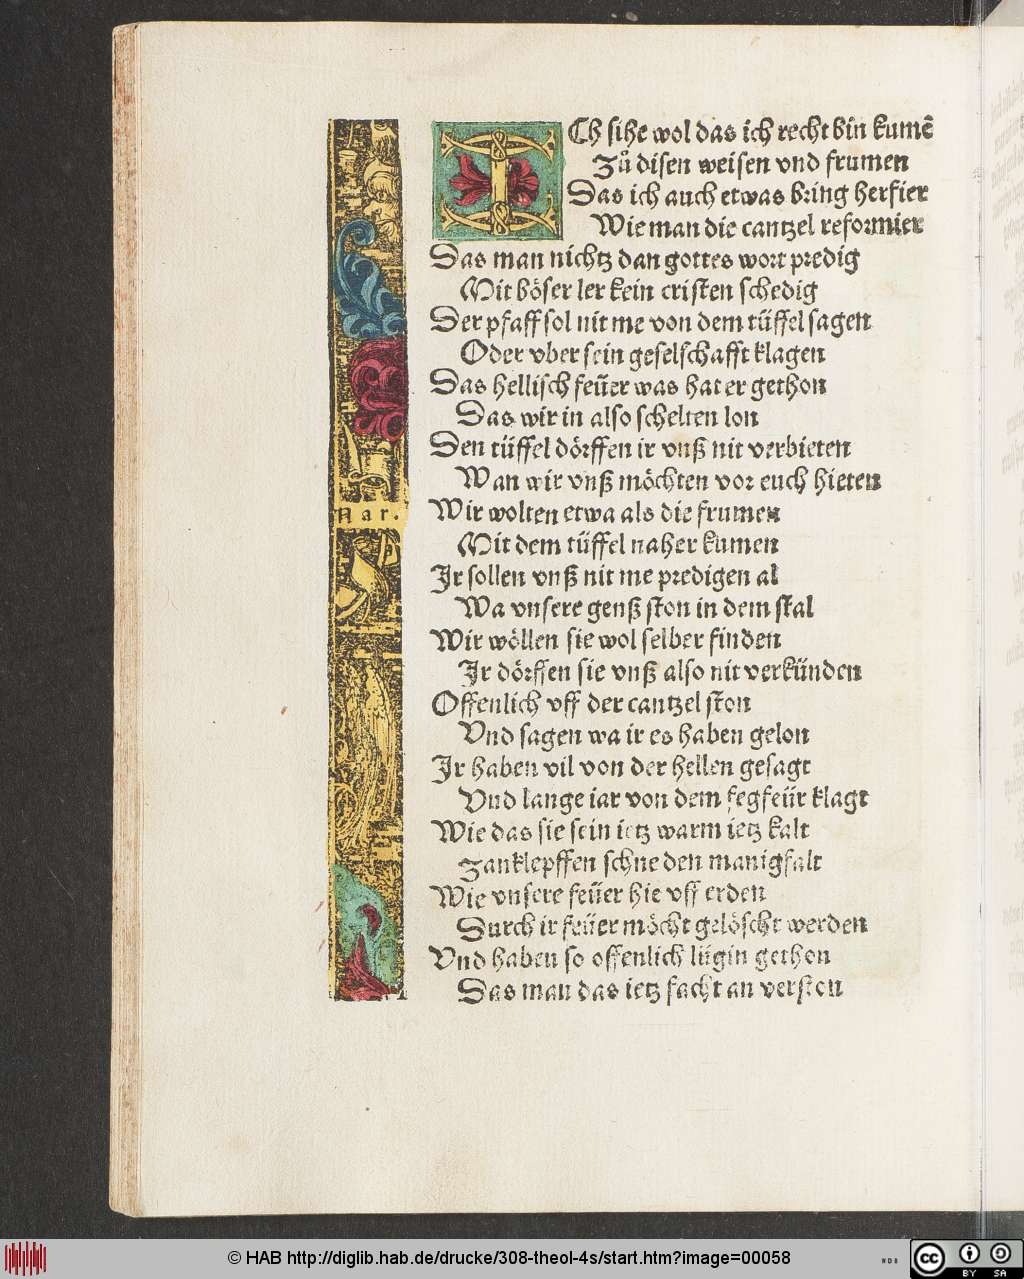 ICh sihe wol das ich recht bin kumē
Zů disen weisen vnd frumen
Das ich auch etwas bring herfier
Wie man die cantzel reformier
Das man nichtz dan gottes wort predig
Mit böser ler kein cristen schedig
Der pfaff sol nit me von dem tüffel sagen
Oder vber sein geselschafft klagen
Das hellisch feüer was hat er gethon
Das wir in also schelten lon
Den tüffel dörffen ir vnß nit verbieten
Wan wir vnß möchten vor euch hieten
Nar.
Wir wolten etwa als die frumen
Mit dem tüffel naher kumen
Ir sollen vnß nit me predigen al
Wa vnsere genß ston in dem stal
Wir wöllen sie wol selber finden
Ir dörffen sie vnß also nit verkünden
Offenlich vff der cantzel ston
Vnd sagen wa ir es haben gelon
Ir haben vil von der hellen gesagt
Vnd lange iar von dem fegfeür klagt
Wie das sie sein ietz warm ietz kalt
Zanklepffen schneden manigfalt
Wie vnsere feüer hie vff erden
Durch ir feüer möcht gelöscht werden
Vnd haben so offenlich lügin gethon
Das man das ietz facht an verston
© HAB http://diglib.hab.de/drucke/308-theol-4s/start.htm?image=00058
cc BY SA